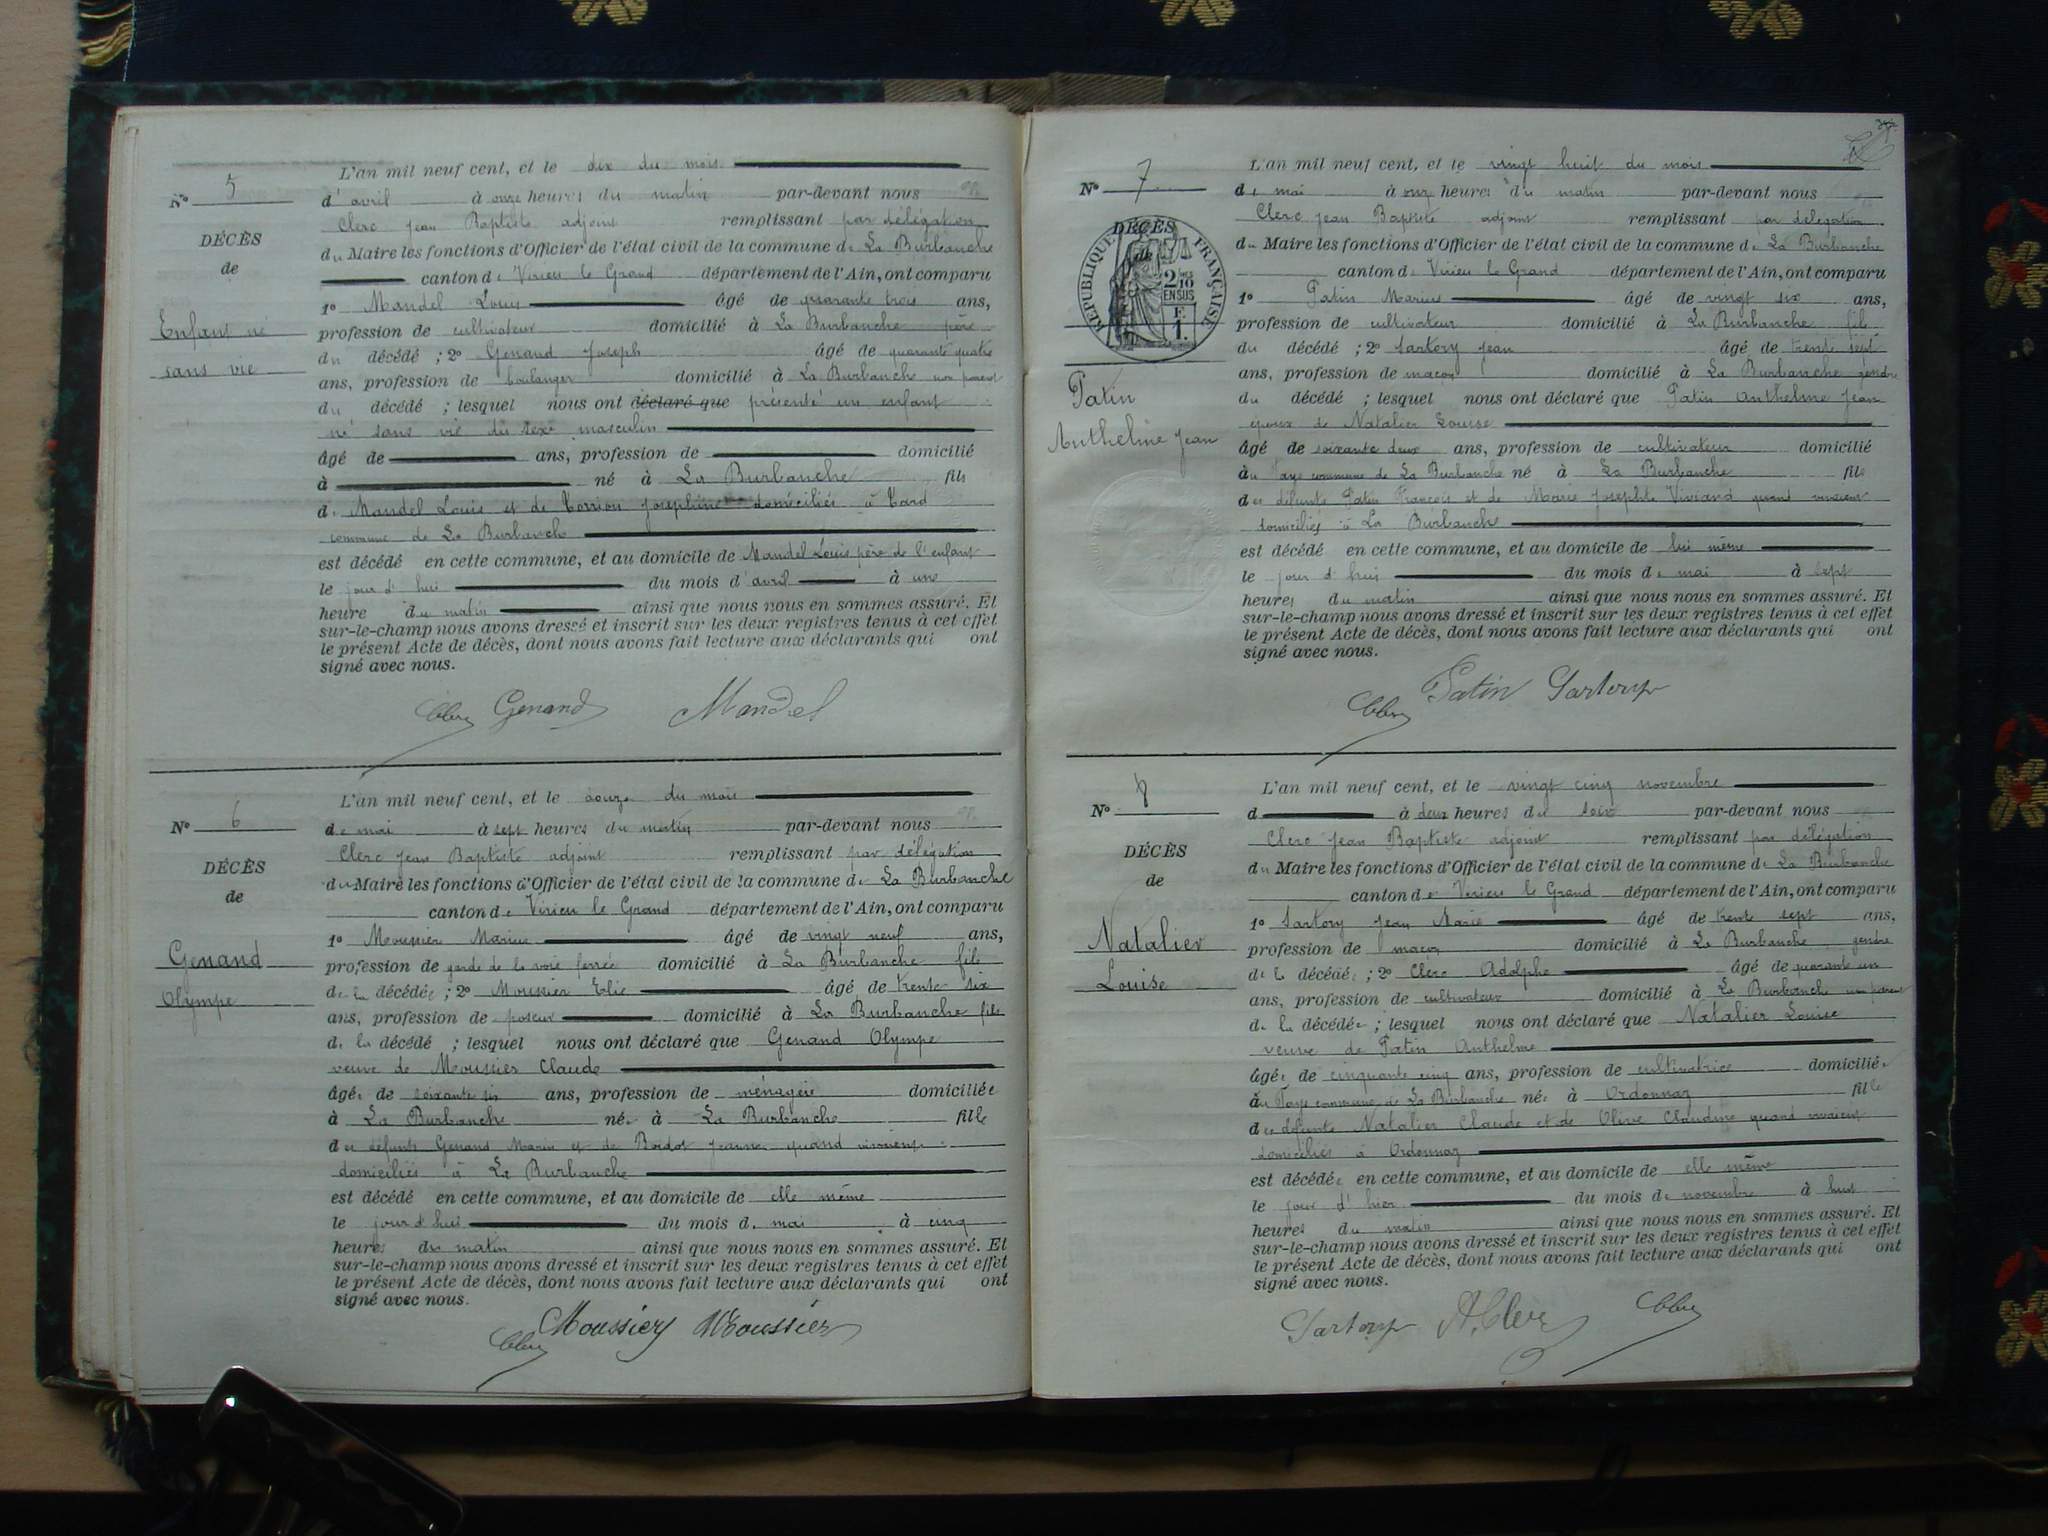 N° 5
DÉCÈS
de
Enfant né
sans vie
L'an mil neuf cent, et le dix du mois
d'avril à onze heures du matin par-devant nous
Clerc Jean Baptiste adjoint remplissant par délégation
du Maire les fonctions d'Officier de l'état civil de la commune de La Burbanche
canton de Virieu le Grand département de l'Ain, ont comparu
1° Mandel Louis âgé de quarante trois ans,
profession de cultivateur domicilié à La Burbanche père
du décédé ; 2° Genand Joseph âgé de quarante quatre
ans, profession de boulanger domicilié à La Burbanche non parent
du décédé ; lesquel nous ont déclaré que présenté un enfant
né sans vie du sexe masculin
âgé de ans, profession de domicilié
à né à La Burbanche fils
de Mandel Louis et de Joséphine domiciliés à
commune de La Burbanche
est décédé en cette commune, et au domicile de Mandel Louis père de l'enfant
le jour d'hui du mois d'avril à une
heure du matin ainsi que nous nous en sommes assuré. Et
sur-le-champ nous avons dressé et inscrit sur les deux registres tenus à cet effet
le présent Acte de décès, dont nous avons fait lecture aux déclarants qui ont
signé avec nous.
Clerc Genand Mandel
N° 6
DÉCÈS
de
Genand
Olympe
L'an mil neuf cent, et le douze du mois
de mai à sept heures du matin par-devant nous
Clerc Jean Baptiste adjoint remplissant par délégation
du Maire les fonctions d'Officier de l'état civil de la commune de La Burbanche
canton de Virieu le Grand département de l'Ain, ont comparu
1° Moussier Marius âgé de vingt neuf ans,
profession de garde de la voie ferrée domicilié à La Burbanche fils
de la décédée ; 2° Moussier Elie âgé de trente six
ans, profession de poseur domicilié à La Burbanche fils
de la décédé ; lesquel nous ont déclaré que Genand Olympe
veuve de Moussier Claude
âgée de soixante six ans, profession de ménagère domiciliée
à La Burbanche née à La Burbanche fille
des défunts Genand Marin et de Jeanne quand vivaient
domiciliés à La Burbanche
est décédé en cette commune, et au domicile de elle même
le jour d'hui du mois de mai à cinq
heures du matin ainsi que nous nous en sommes assuré. Et
sur-le-champ nous avons dressé et inscrit sur les deux registres tenus à cet effet
le présent Acte de décès, dont nous avons fait lecture aux déclarants qui ont
signé avec nous.
Clerc Moussier Moussier
N° 7
DÉCÈS
de
RÉPUBLIQUE FRANÇAISE
2/10
EN SUS
F.
1.
Patin
Anthelme Jean
L'an mil neuf cent, et le vingt huit du mois
de mai à onze heures du matin par-devant nous
Clerc Jean Baptiste adjoint remplissant par délégation
du Maire les fonctions d'Officier de l'état civil de la commune de La Burbanche
canton de Virieu le Grand département de l'Ain, ont comparu
1° Patin Marius âgé de vingt six ans,
profession de cultivateur domicilié à La Burbanche fils
du décédé ; 2° Sartory Jean âgé de trente sept
ans, profession de maçon domicilié à La Burbanche gendre
du décédé ; lesquel nous ont déclaré que Patin Anthelme Jean
époux de Natalier Louise
âgé de soixante deux ans, profession de cultivateur domicilié
au Tay commune de La Burbanche né à La Burbanche fils
des défunts Patin François et de Marie Josephte Viviand quand vivaient
domiciliés à La Burbanche
est décédé en cette commune, et au domicile de lui même
le jour d'hui du mois de mai à sept
heures du matin ainsi que nous nous en sommes assuré. Et
sur-le-champ nous avons dressé et inscrit sur les deux registres tenus à cet effet
le présent Acte de décès, dont nous avons fait lecture aux déclarants qui ont
signé avec nous.
Clerc Patin Sartory
N° 8
DÉCÈS
de
Natalier
Louise
L'an mil neuf cent, et le vingt cinq novembre
d à deux heures du soir par-devant nous
Clerc Jean Baptiste adjoint remplissant par délégation
du Maire les fonctions d'Officier de l'état civil de la commune de La Burbanche
canton de Virieu le Grand département de l'Ain, ont comparu
1° Sartory Jean Marie âgé de trente sept ans,
profession de maçon domicilié à La Burbanche gendre
de la décédée ; 2° Clerc Adolphe âgé de quarante un
ans, profession de cultivateur domicilié à La Burbanche non parent
de la décédée ; lesquel nous ont déclaré que Natalier Louise
veuve de Patin Anthelme
âgée de cinquante cinq ans, profession de cultivatrice domiciliée
au Tay commune de La Burbanche née à Ordonnaz fille
des défunts Natalier Claude et de Olive Claudine quand vivaient
domiciliés à Ordonnaz
est décédée en cette commune, et au domicile de elle même
le jour d'hier du mois de novembre à huit
heures du matin ainsi que nous nous en sommes assuré. Et
sur-le-champ nous avons dressé et inscrit sur les deux registres tenus à cet effet
le présent Acte de décès, dont nous avons fait lecture aux déclarants qui ont
signé avec nous.
Sartory A. Clerc Clerc